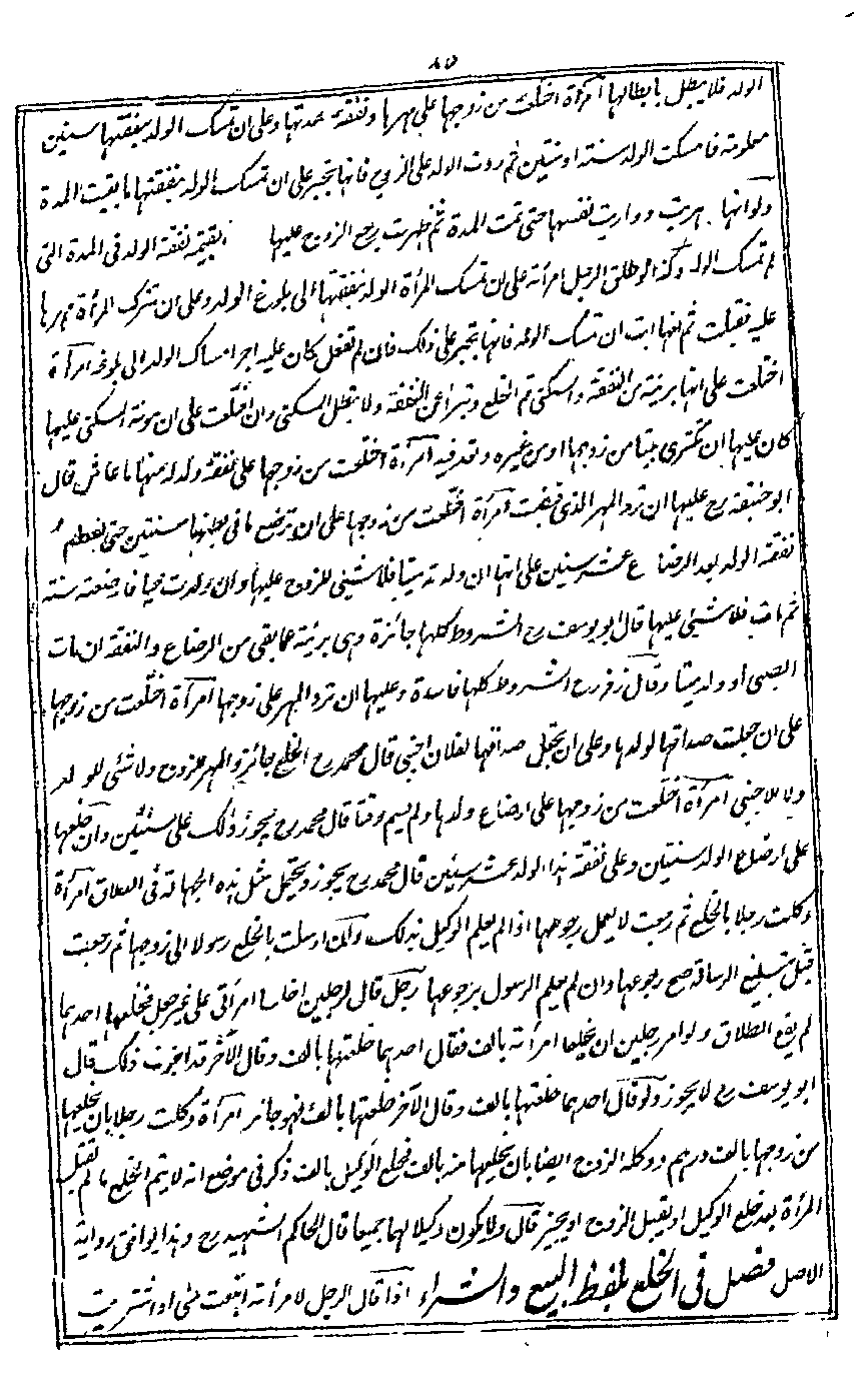 ٨٥
الولد فلا يبطل بابطالها امرأة اختلعت من زوجها على مهرها ونفقة عدتها وعلى ان تمسك الولد بنفقتها سنين
معلومة فامسكت الولد سنة او سنتين ثم ردت الولد على الزوج فانها تجبر على ان تمسك الولد بنفقتها ما بقيت المدة
ولو انها هربت ووارت نفسها حتى تمت المدة ثم ظهرت يرجع الزوج عليها بقيمة نفقة الولد فى المدة التى
لم تمسك الولد وكذا لو طلق الرجل امرأته على ان تمسك المرأة الولد بنفقتها الى بلوغ الولد وعلى ان تترك المرأة مهرها
عليه فقبلت ثم انها ابت ان تمسك الولد فانها تجبر على ذلك فان لم تفعل كان عليها اجر امساك الولد الى بلوغه امرأة
اختلعت على انها بريئة من النفقة والسكنى تم الخلع وتبرأ عن النفقة ولا تبطل السكنى وان اختلعت على ان مونة السكنى عليها
كان عليها ان تكترى بيتا من زوجها او من غيره وتعتد فيه امرأة اختلعت من زوجها على نفقة ولد له منها ما عاش قال
ابو حنيفة رح عليها ان ترد المهر الذى قبضت امرأة اختلعت من زوجها على ان ترضع ما فى بطنها سنتين حتى تفطم
نفقة الولد بعد الرضاع عشر سنين على انها ان ولدته ميتا فلا شيئى للزوج عليها وان ولدت حيا فارضعته سنة
ثم مات فلا شيئى عليها قال ابو يوسف رح الشروط كلها جائزة وهى بريئة عما بقى من الرضاع والنفقة ان مات
الصبى او ولد ميتا وقال زفر رح الشروط كلها فاسدة وعليها ان ترد المهر على زوجها امرأة اختلعت من زوجها
على ان جعلت صداقها لولدها وعلى ان تجعل صداقها لفلان اجنبى قال محمد رح الخلع جائز والمهر للزوج ولا شئى للولد
ولا للاجنبى امرأة اختلعت من زوجها على ارضاع ولدها ولم يسم وقتا قال محمد رح يجوز ذلك على سنتين وان خلعها
على ارضاع الولد سنتين وعلى نفقة هذا الولد عشر سنين قال محمد رح يجوز ويحتمل مثل هذه الجهالة فى الطلاق امرأة
وكلت رجلا بالخلع ثم رجعت لا يعمل رجوعها اذا لم يعلم الوكيل بذلك ولكن ارسلت بالخلع رسولا الى زوجها ثم رجعت
قبل تبليغ الرسالة صح رجوعها وان لم يعلم الرسول برجوعها رجل قال لرجلين اخلعا امرأتى على غير جعل فخلعها احدهما
لم يقع الطلاق ولو امر رجلين ان يخلعا امرأته بالف فقال احدهما خلعتها بالف وقال الآخر قد اجزت ذلك قال
ابو يوسف رح لا يجوز ولو قال احدهما خلعتها بالف وقال الآخر خلعتها بالف فهو جائز امرأة وكلت رجلا بان يخلعها
من زوجها بالف درهم ووكله الزوج ايضا بان يخلعها منه بالف فخلع الوكيل بالف ذكر فى موضع انه لا يتم الخلع ما لم تقبل
المرأة بعد خلع الوكيل او يقبل الزوج او يجيز قال ولا يكون وكيلا لهما جميعا قال الحاكم الشهيد رح وهذا يوافق رواية
الاصل فصل فى الخلع بلفظ البيع والشراء اذا قال الرجل لامرأته ابتعت منى او اشتريت